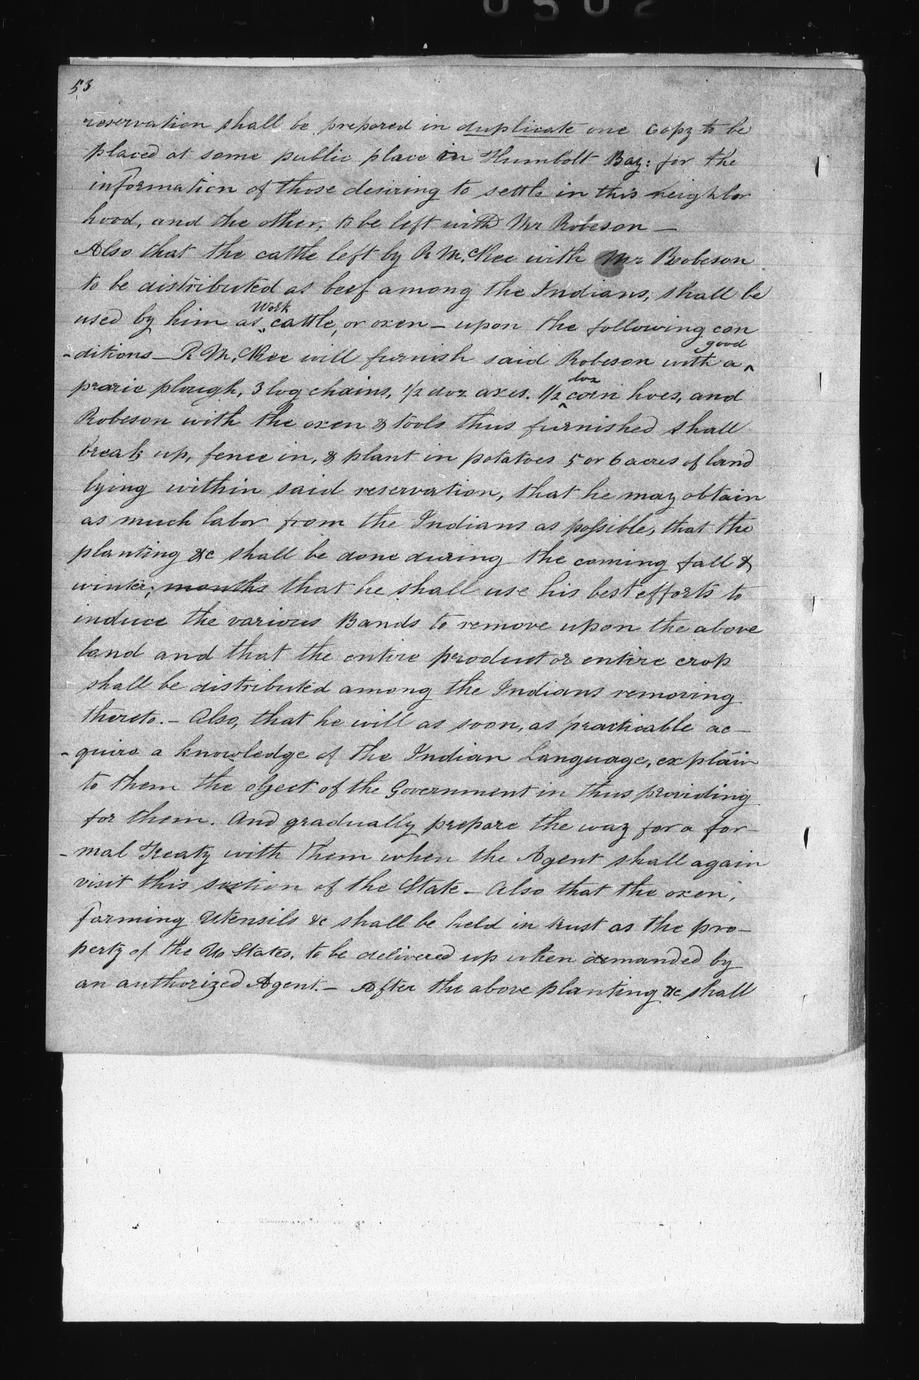 0502
53
reservation shall be prepared in duplicate one copy to be
placed at some public place in Humbolt Bay: for the
information of those desiring to settle in this neighbor
hood, and the other, to be left with Mr Robeson —
Also that the cattle left by R McKee with Mr Robeson
to be distributed as beef among the Indians, shall be
Work
used by him as cattle, or oxen — upon the following con
good
-ditions — R McKee will furnish said Robeson with a
doz
prarie plough, 3 log chains, 1/2 doz axes. 1/2 corn hoes, and
Robeson with the oxen & tools thus furnished shall
break up, fence in, & plant in potatoes 5 or 6 acres of land
lying within said reservation, that he may obtain
as much labor from the Indians as possible, that the
planting &c shall be done during the coming fall &
winter, months that he shall use his best efforts to
induce the various Bands to remove upon the above
land and that the entire product or entire crop
shall be distributed among the Indians removing
thereto. — Also, that he will as soon, as practicable ac—
-quire a knowledge of the Indian Language, explain
to them the object of the Government in thus providing
for them. And gradually prepare the way for a for—
-mal Treaty with them when the Agent shall again
visit this section of the State — Also that the oxen,
farming Utensils &c shall be held in trust as the pro—
perty of the Uo States, to be delivered up when demanded by
an authorized Agent — After the above planting &c shall